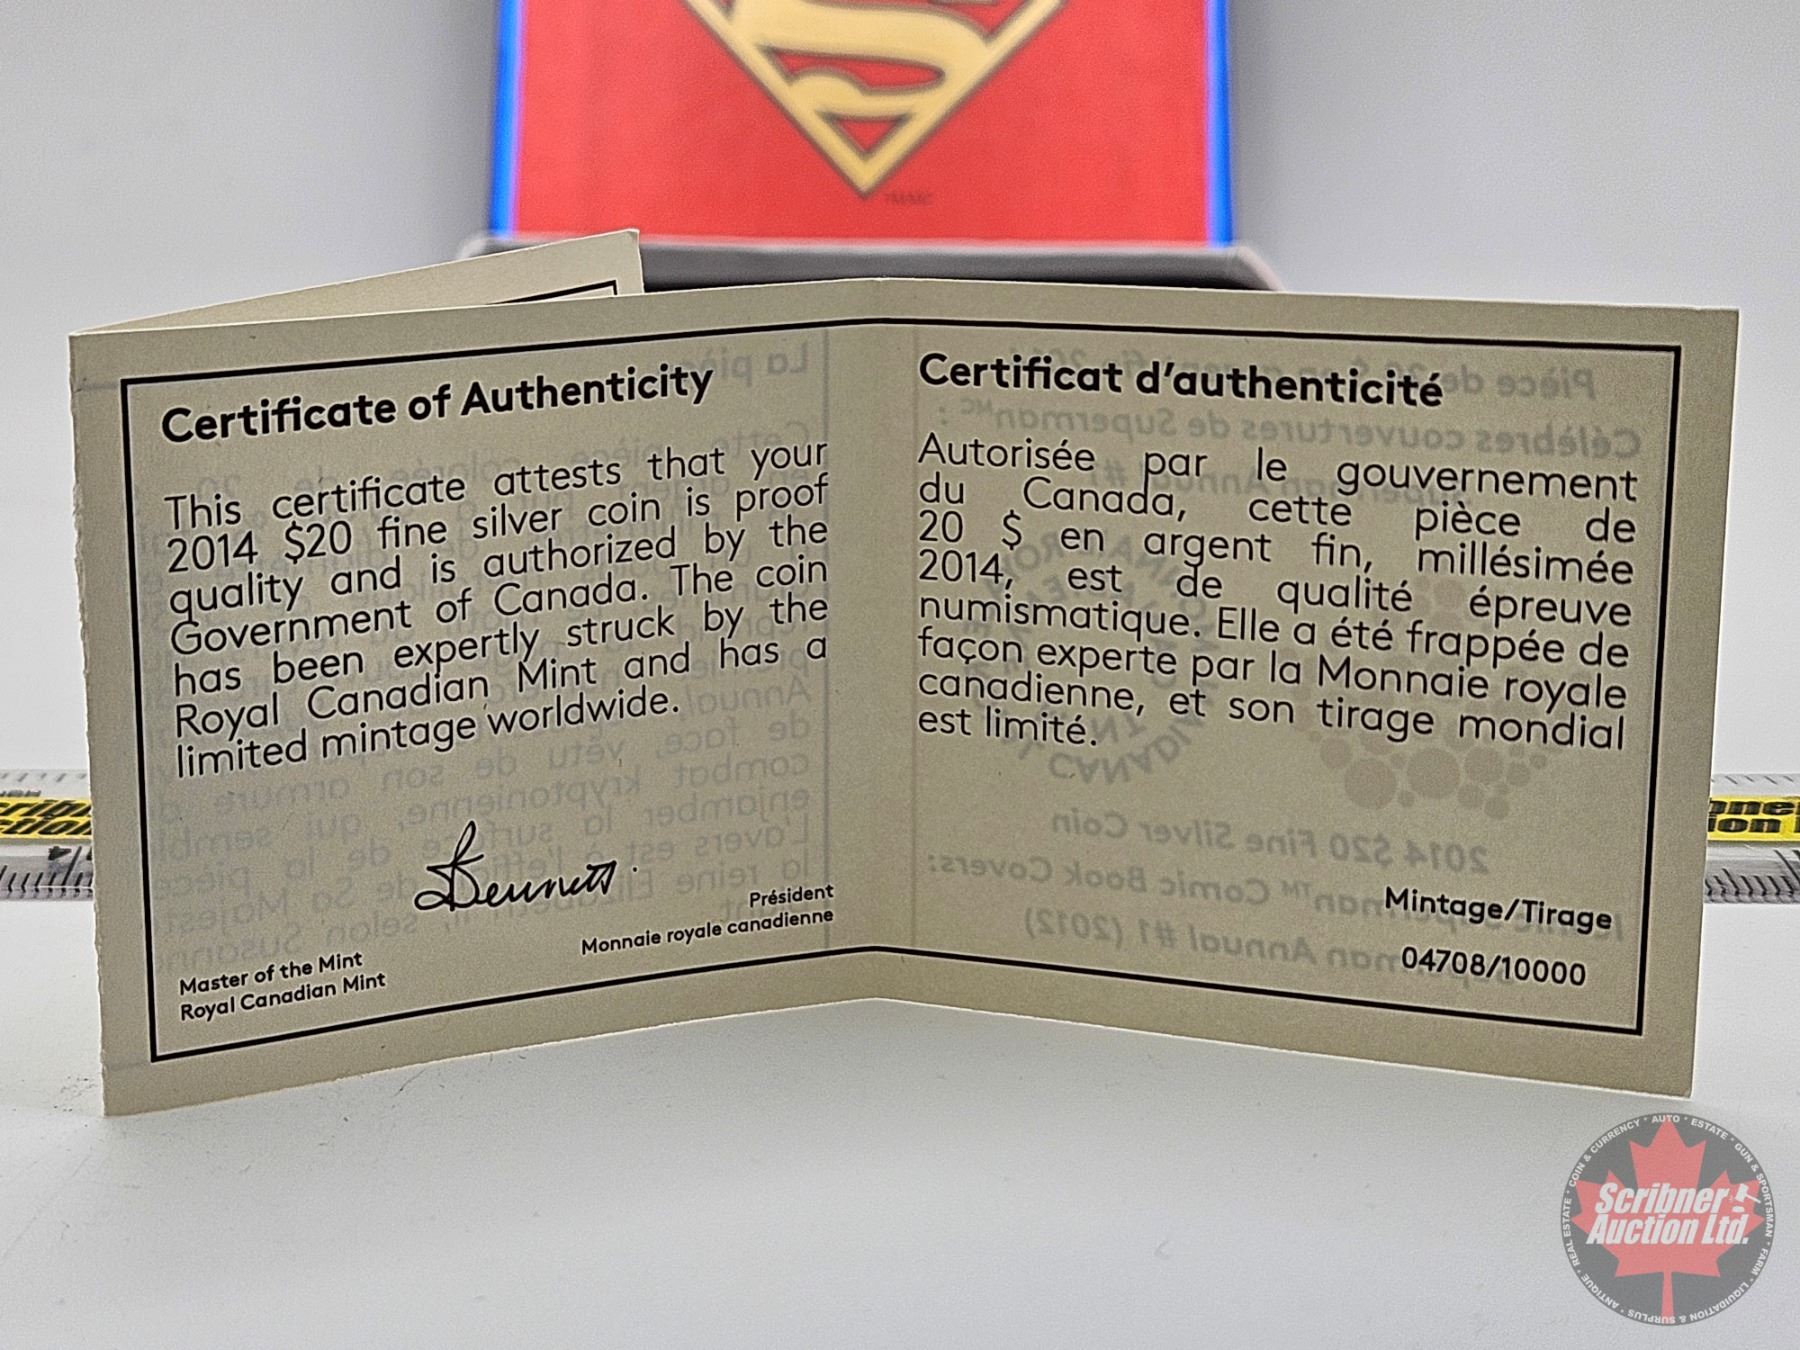 Certificate of Authenticity
This certificate attests that your
2014 $20 fine silver coin is proof
quality and is authorized by the
Government of Canada. The coin
has been expertly struck by the
Royal Canadian Mint and has a
limited mintage worldwide.
Bennett
Président
Monnaie royale canadienne
Master of the Mint
Royal Canadian Mint
Certificat d'authenticité
Autorisée par le gouvernement
du Canada, cette pièce de
20 $ en argent fin, millésimée
2014, est de qualité épreuve
numismatique. Elle a été frappée de
façon experte par la Monnaie royale
canadienne, et son tirage mondial
est limité.
Mintage/Tirage
04708/10000
Scribner
Auction Ltd.
COIN & CURRENCY · AUTO · ESTATE · GUN & SPORTSMAN · FARM · LIQUIDATION & SURPLUS · ANTIQUE · REAL ESTATE ·